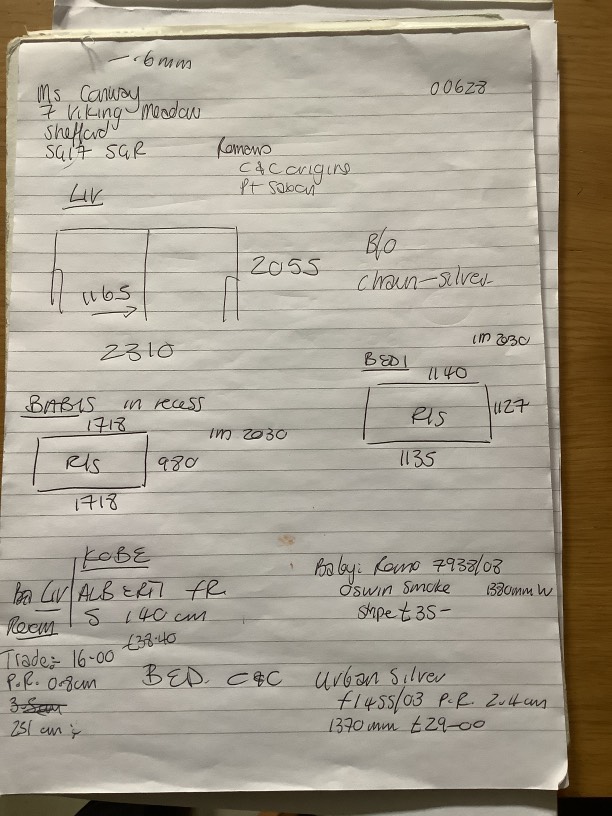 -.6mm
00628
Ms Conway
7 Viking Meadow
Sheffard
SG17 5GR
Romans
C&C origins
Pt Saban
LIV
2055
B/O
Chain-silver
1165
2310
1m 2030
BED1
1140
R/S
1127
1135
BABIS in recess
1718
1m 2030
R/S
980
1718
KOBE
Ba LIV ALBERT FR
Room 5 140 cm
£38.40
Trade:- 16-00
P.R. 0.8cm
251 cm
Baby: Romo 7938/08
Oswin Smoke 1380mm W
Stripe £35-
BED. C&C Urban Silver
f1455/03 P.R. 2.4cm
1370mm £29-00